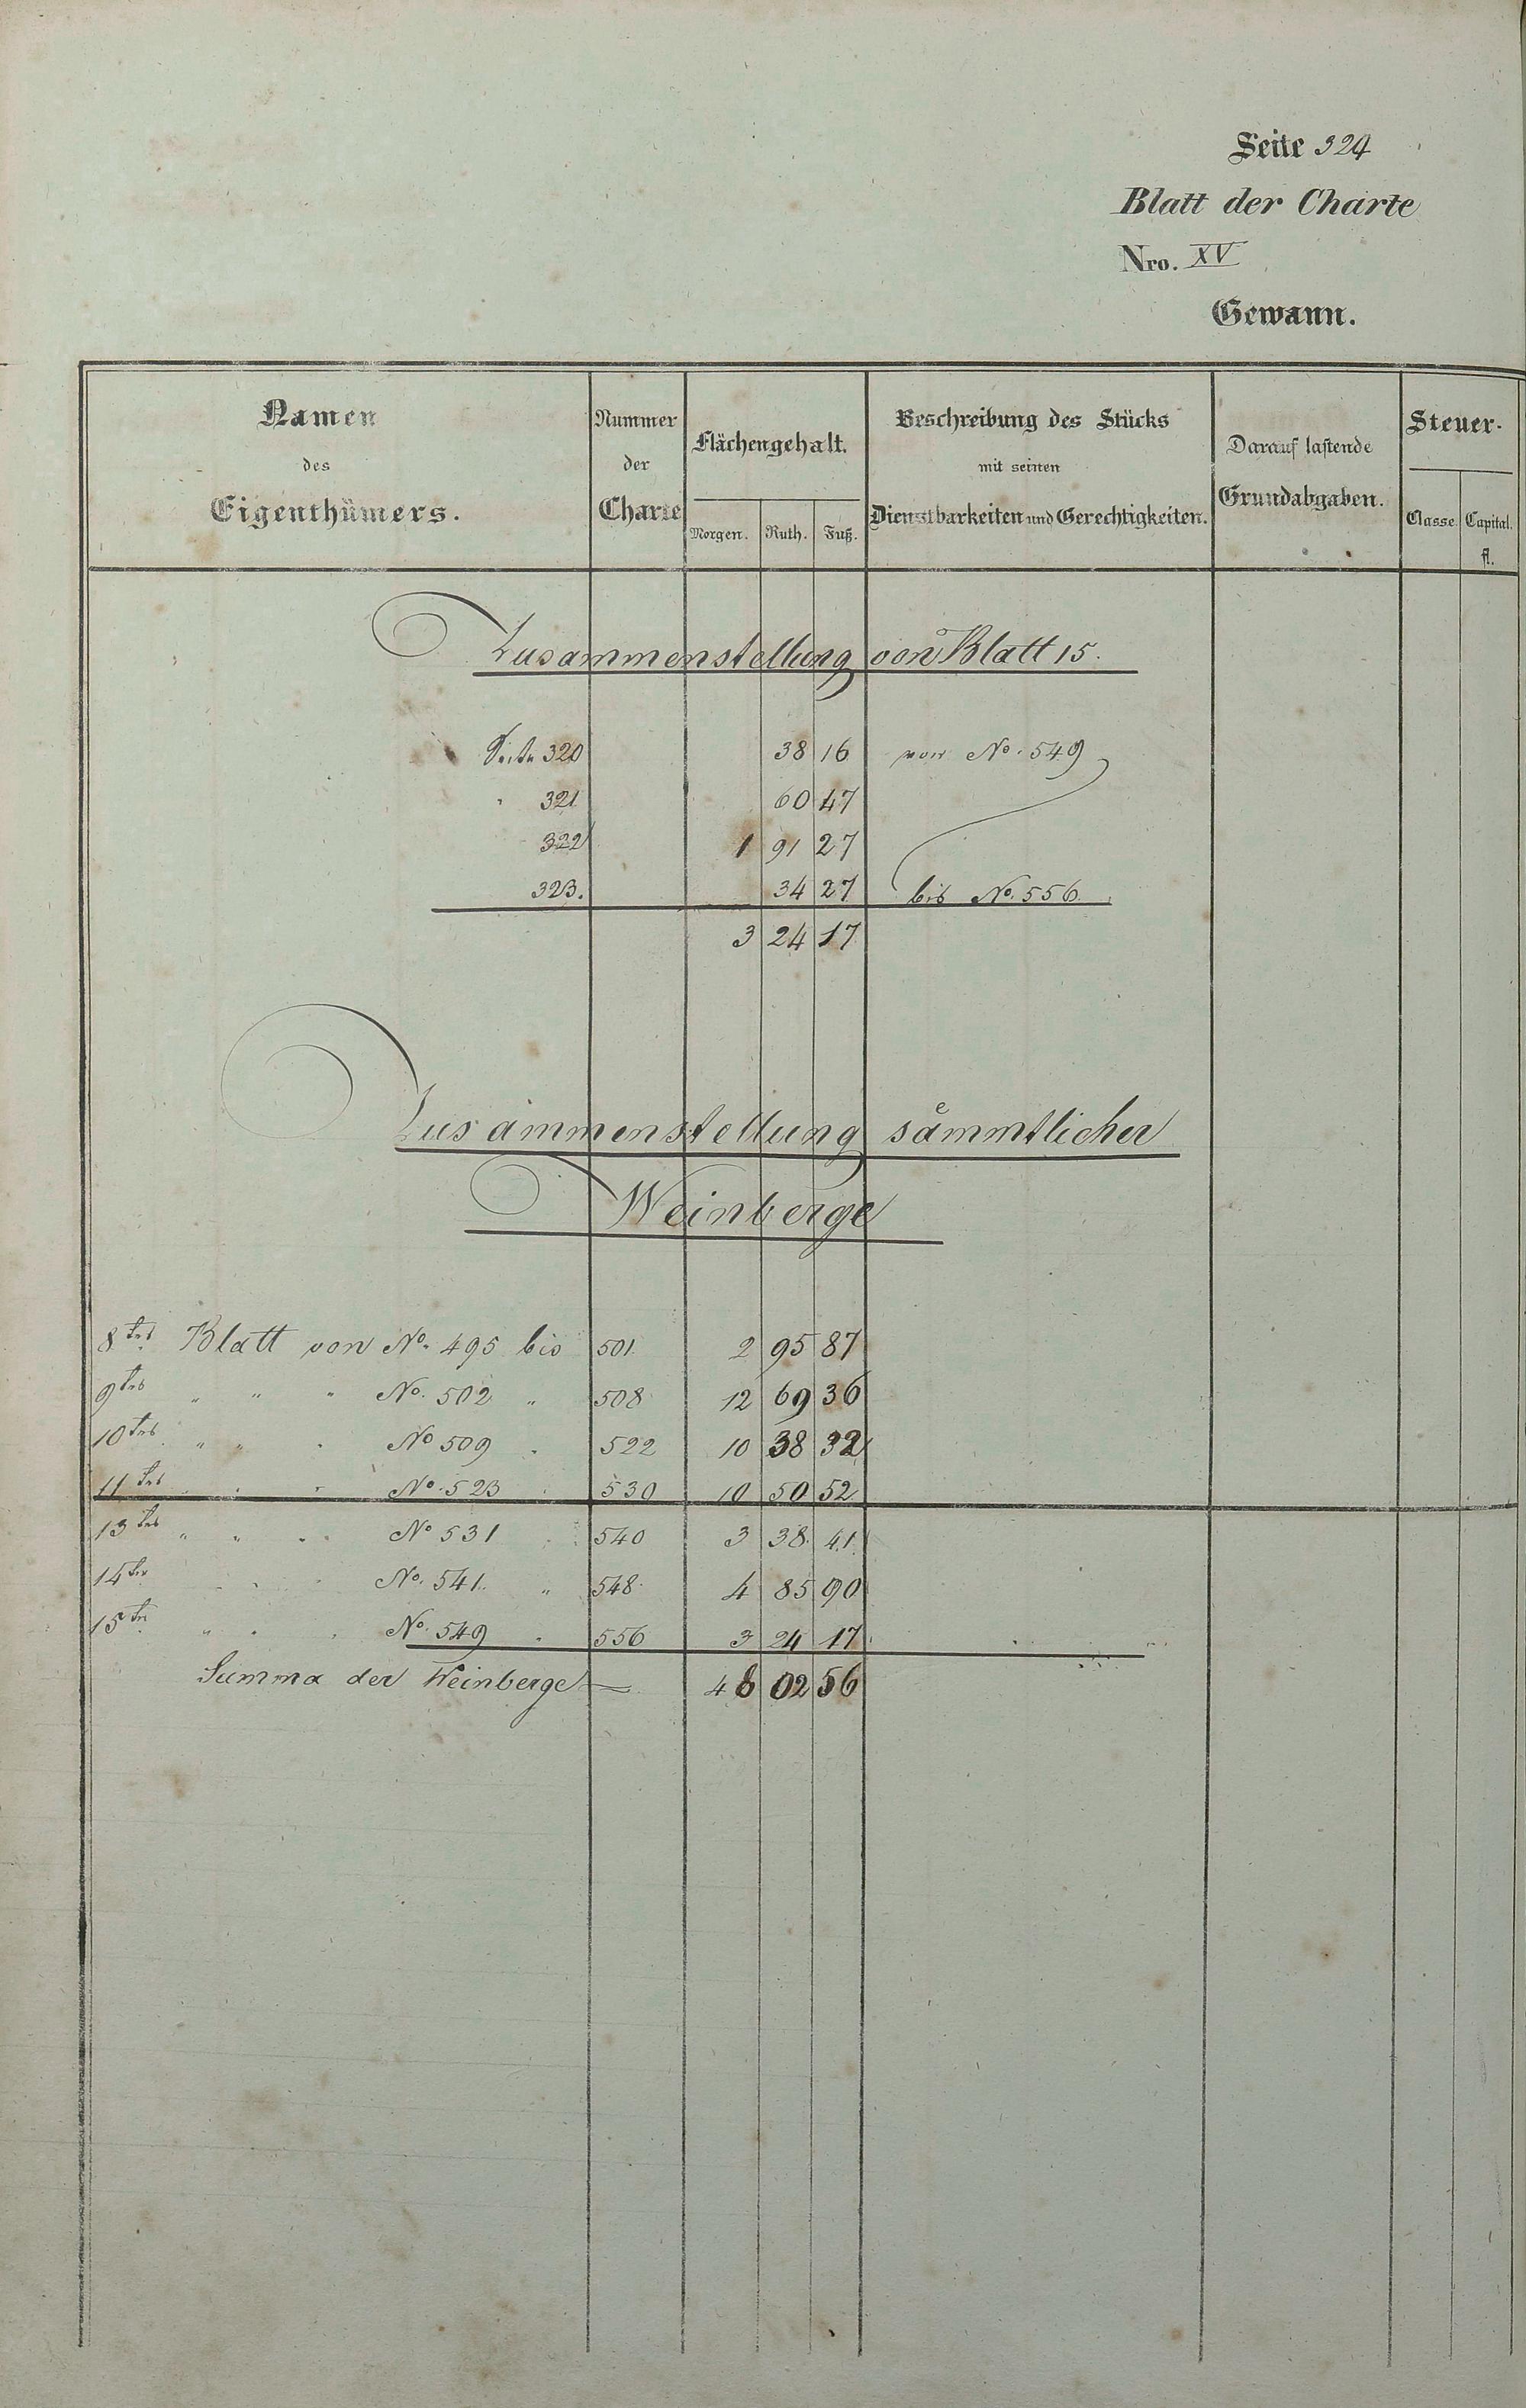 Seite 324
Blatt der Charte
Nro. XV
Gewann.
Namen des Eigenthümers.
Nummer der Charte
Flächengehalt.
Morgen. Ruth. Fuß.
Beschreibung des Stücks mit seinen Dienstbarkeiten und Gerechtigkeiten.
Darauf lastende Grundabgaben.
Steuer-
Classe. Capital.
fl.
Zusammenstellung von Blatt 15.
Seite 320 38 16 von No. 549
" 321 60 47
322 1 91 27
323. 34 27 bis No. 556.
3 24 17
Zusammenstellung sämmtlicher
Weinberge
8tes Blatt von No. 495 bis 501. 2 95 87
9tes " " " No. 502 " 508 12 69 36
10tes " " " No 509 " 522 10 38 32
11tes " " No. 523 " 530 10 50 52
13tes " " " No 531 " 540 3 38 41.
14tes " " " No. 541. " 548. 4 85 90
15tes " " " No. 549 " 556 3 24 17.
Summa der Weinberge — 48 02 56